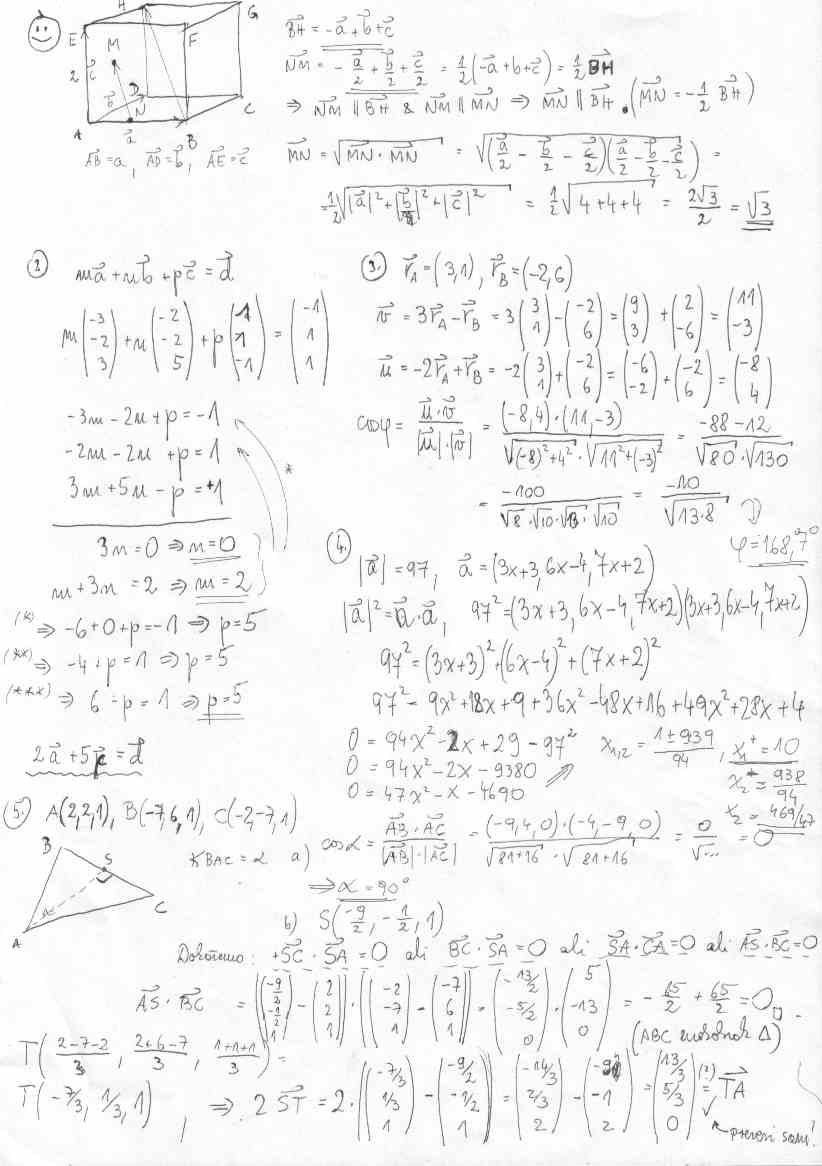 H G
E F
M
2 c⃗
D C
b⃗ N
A a⃗ B
AB⃗ = a⃗, AD⃗ = b⃗, AE⃗ = c⃗
BH⃗ = -a⃗ + b⃗ + c⃗
NM⃗ = - a⃗/2 + b⃗/2 + c⃗/2 = 1/2(-a⃗+b+c⃗) = 1/2 BH⃗
⇒ NM⃗ ∥ BH⃗ & NM⃗ ∥ MN⃗ ⇒ MN⃗ ∥ BH⃗. (MN⃗ = -1/2 BH⃗)
MN⃗ = √(MN⃗ · MN⃗) = √((a⃗/2 - b⃗/2 - c⃗/2)(a⃗/2 - b⃗/2 - c⃗/2)) =
= 1/2 √(|a⃗|² + |b⃗|² + |c⃗|²) = 1/2 √(4+4+4) = 2√3/2 = √3
2. ma⃗ + nb⃗ + pc⃗ = d⃗
m(-3, -2, 3) + n(-2, -2, 5) + p(1, 1, -1) = (-1, 1, 1)
-3m - 2n + p = -1
-2m - 2n + p = 1 *
3m + 5n - p = +1
3n = 0 ⇒ n = 0
m + 3n = 2 ⇒ m = 2
(*) ⇒ -6 + 0 + p = -1 ⇒ p = 5
(**) ⇒ -4 + p = 1 ⇒ p = 5
(***) ⇒ 6 - p = 1 ⇒ p = 5
2a⃗ + 5c⃗ = d⃗
3. r⃗A = (3,1), r⃗B = (-2,6)
v⃗ = 3r⃗A - r⃗B = 3(3, 1) - (-2, 6) = (9, 3) + (2, -6) = (11, -3)
u⃗ = -2r⃗A + r⃗B = -2(3, 1) + (-2, 6) = (-6, -2) + (-2, 6) = (-8, 4)
cosφ = u⃗·v⃗ / |u⃗|·|v⃗| = (-8,4)·(11,-3) / √((-8)²+4²) · √(11²+(-3)²) = -88-12 / √80 · √130
= -100 / √8·√10·√13·√10 = -10 / √(13·8) ⇒
φ = 168,7°
4. |a⃗| = 97, a⃗ = (3x+3, 6x-4, 7x+2)
|a⃗|² = a⃗·a⃗, 97² = (3x+3, 6x-4, 7x+2)(3x+3, 6x-4, 7x+2)
97² = (3x+3)² + (6x-4)² + (7x+2)²
97² = 9x² + 18x + 9 + 36x² - 48x + 16 + 49x² + 28x + 4
0 = 94x² - 2x + 29 - 97² x1,2 = 1±939/94, x1 = 10
0 = 94x² - 2x - 9380 ⇒ x2 = 938/94
0 = 47x² - x - 4690 x2 = 469/47
5. A(2,2,1), B(-7,6,1), C(-2,-7,1)
B S
α
A C
∢BAC = α a) cosα = AB⃗·AC⃗ / |AB⃗|·|AC⃗| = (-9,4,0)·(-4,-9,0) / √(81+16) · √(81+16) = 0/√... = 0
⇒ α = 90°
b) S(-9/2, -1/2, 1)
Določimo: +SC⃗ · SA⃗ = 0 ali BC⃗ · SA⃗ = 0 ali SA⃗ · CA⃗ = 0 ali AS⃗ · BC⃗ = 0
AS⃗ · BC⃗ = ((-9/2, -1/2, 1) - (2, 2, 1)) · ((-2, -7, 1) - (-7, 6, 1)) = (-13/2, -5/2, 0) · (5, -13, 0) = -65/2 + 65/2 = 0
(ABC enakokrak Δ)
T(2-7-2/3, 2+6-7/3, 1+1+1/3) =
T(-7/3, 1/3, 1), ⇒ 2 ST⃗ = 2·((-7/3, 1/3, 1) - (-9/2, -1/2, 1)) = (-14/3, 2/3, 2) - (-9, -1, 2) = (13/3, 5/3, 0) (?)= TA⃗
✓ preveri sam!